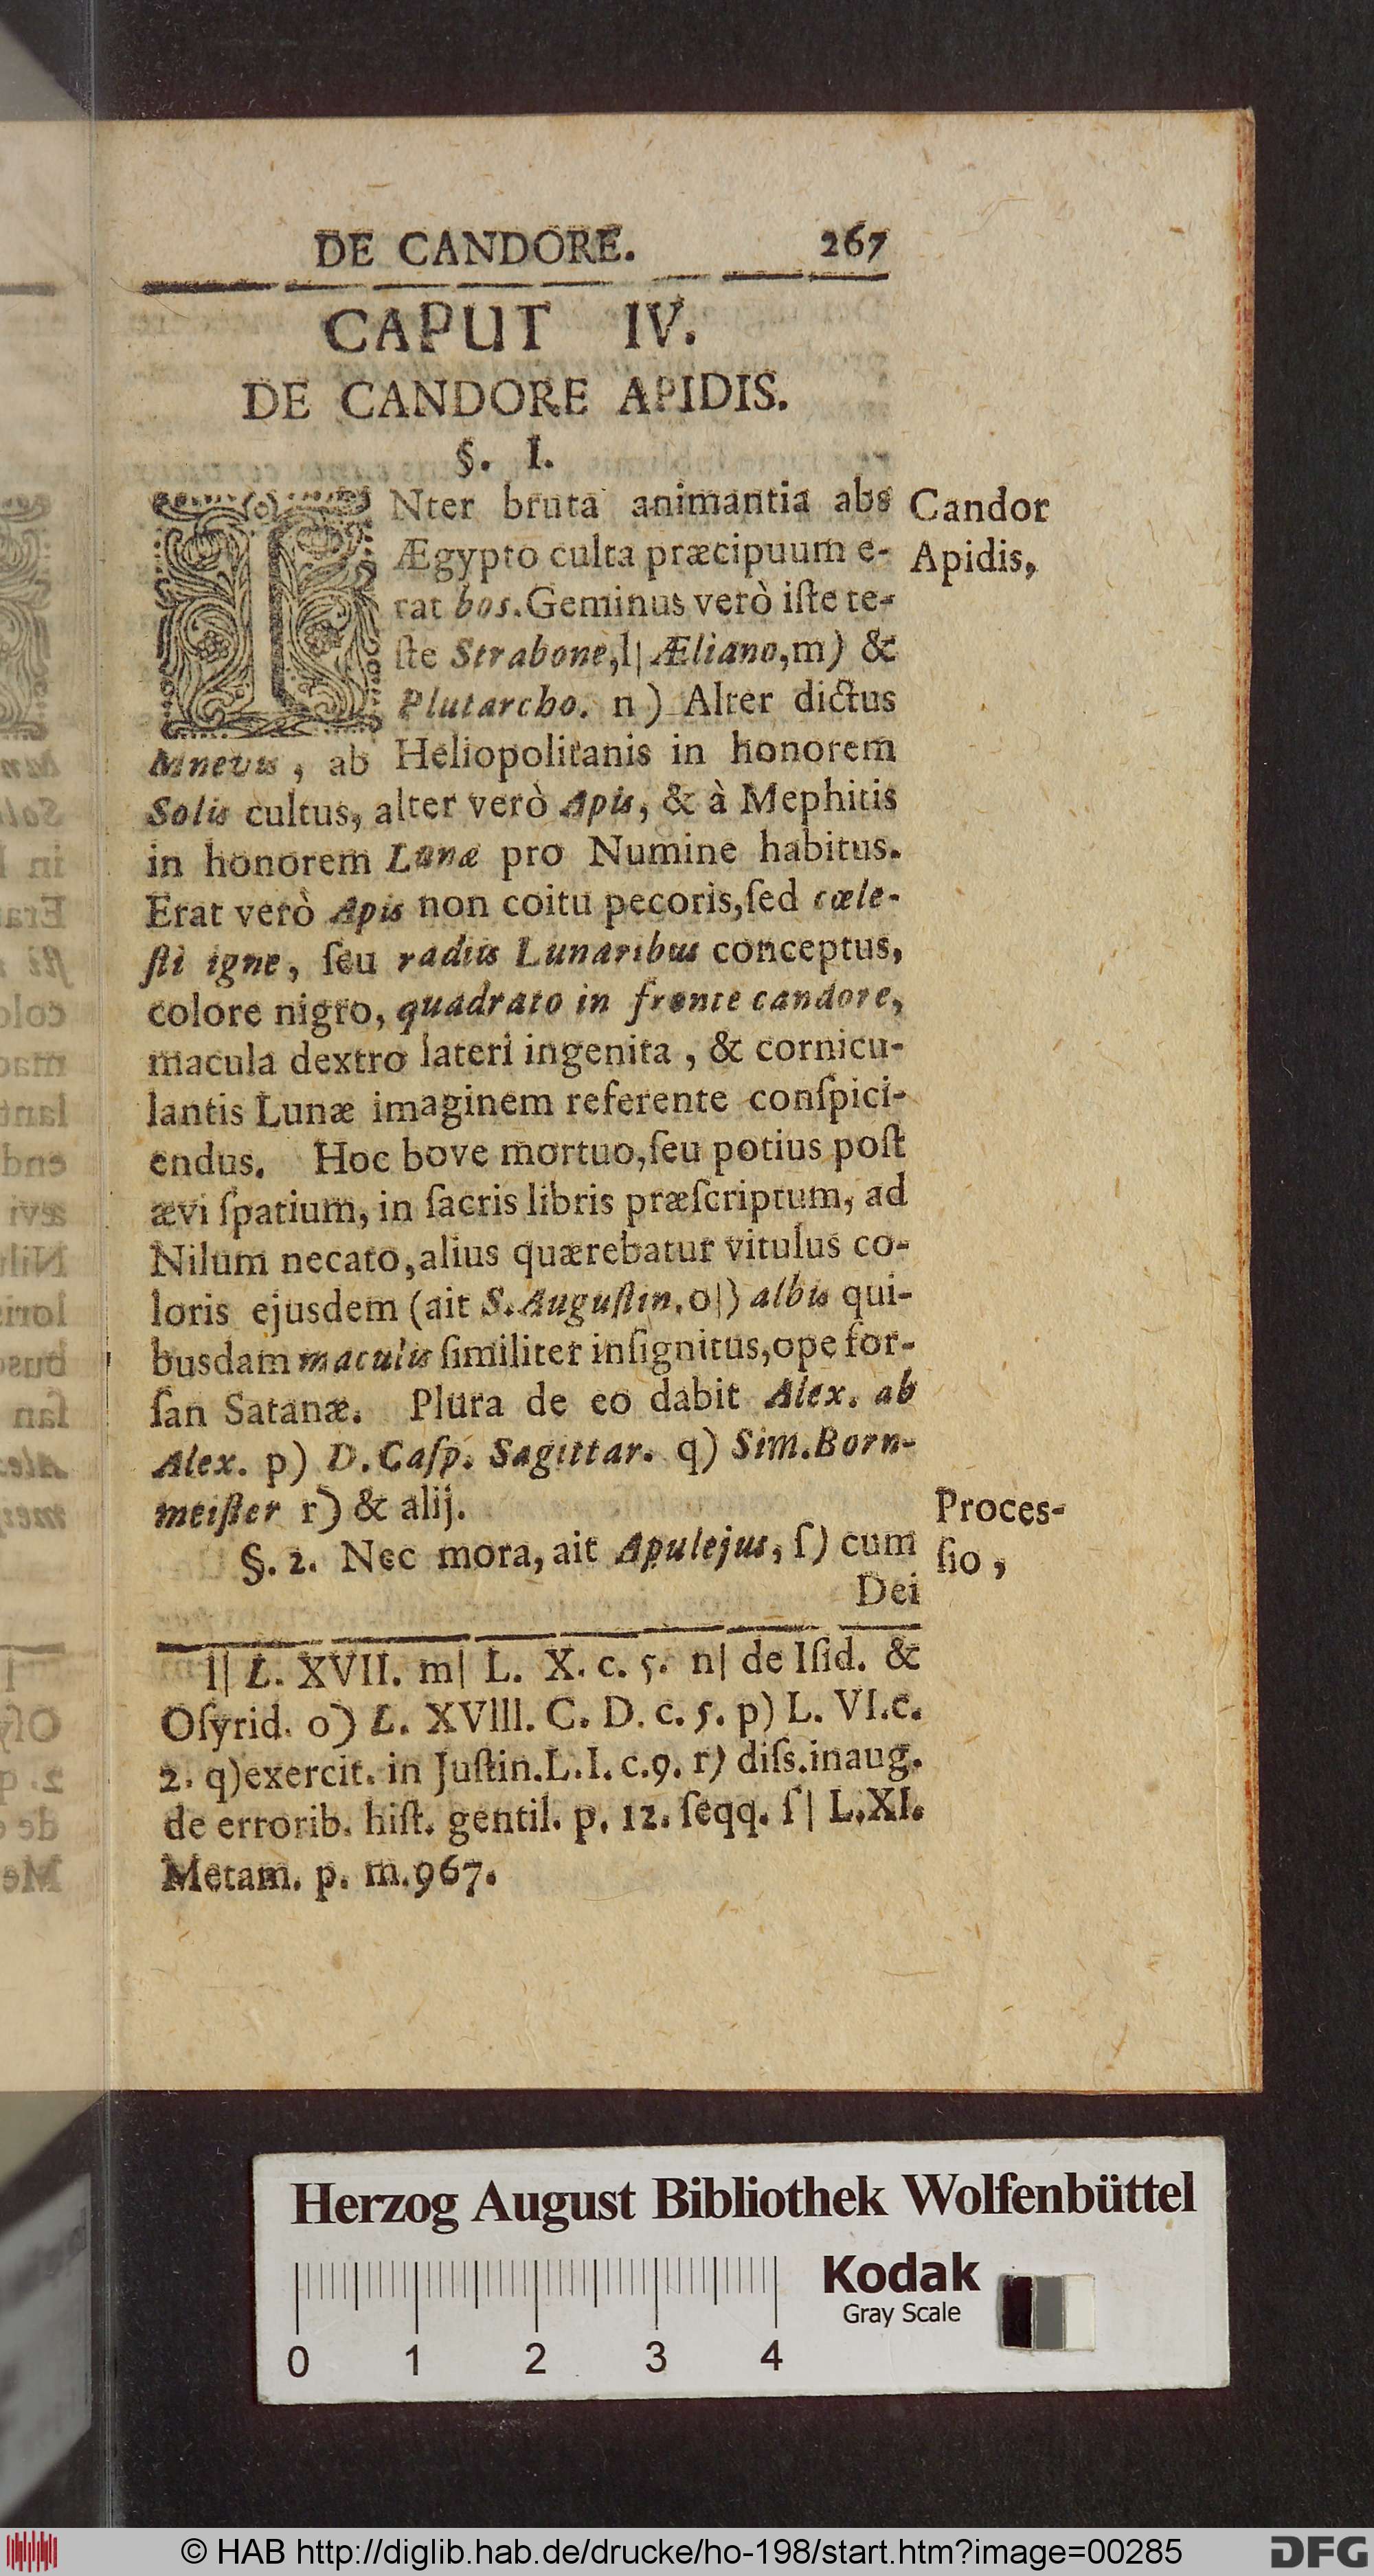 DE CANDORE. 267
CAPUT IV.
DE CANDORE APIDIS.
§. I.
INter bruta animantia abs
Ægypto culta præcipuum e-
rat bos. Geminus verò iſte te-
ſte Strabone,l| Æliano,m) &
Plutarcho. n) Alter dictus
Mnevis, ab Heliopolitanis in honorem
Solis cultus, alter verò Apis, & à Mephitis
in honorem Lunæ pro Numine habitus.
Erat verò Apis non coitu pecoris,ſed cæle-
ſti igne, ſeu radiis Lunaribus conceptus,
colore nigro, quadrato in fronte candore,
macula dextro lateri ingenita, & cornicu-
lantis Lunæ imaginem referente conſpici-
endus. Hoc bove mortuo,ſeu potius poſt
ævi ſpatium, in ſacris libris præſcriptum, ad
Nilum necato,alius quærebatur vitulus co-
loris ejusdem (ait S.Auguſtin.o|) albis qui-
busdam maculis ſimiliter inſignitus,ope for-
ſan Satanæ. Plura de eo dabit Alex. ab
Alex. p) D.Caſp. Sagittar. q) Sim.Born-
meiſter r) & alij.
§. 2. Nec mora, ait Apulejus, ſ) cum
Dei
Candor
Apidis,
Proces-
ſio,
l| L. XVII. m| L. X. c. 5. n| de Iſid. &
Oſyrid. o) L. XVIII. C. D. c. 5. p) L. VI.c.
2. q)exercit. in Juſtin.L.I.c.9. r) diſs.inaug.
de errorib. hiſt. gentil. p. 12. ſeqq. ſ| L.XI.
Metam. p. m.967.
Herzog August Bibliothek Wolfenbüttel
Kodak
Gray Scale
0 1 2 3 4
© HAB http://diglib.hab.de/drucke/ho-198/start.htm?image=00285
DFG